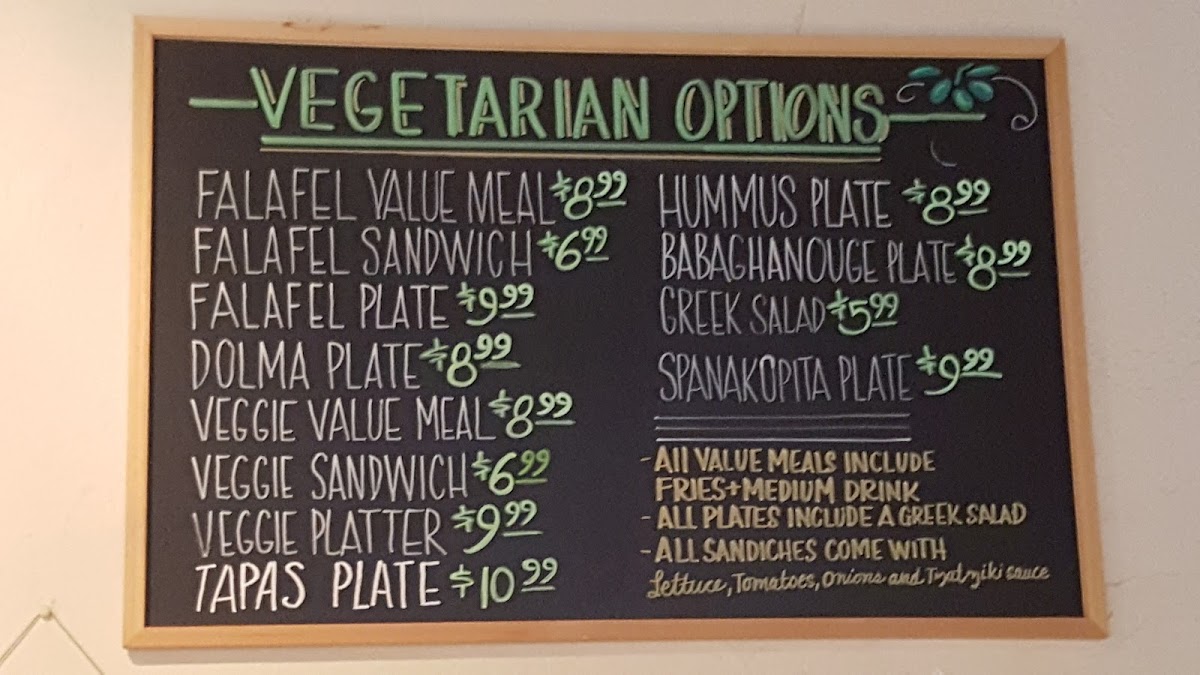 VEGETARIAN OPTIONS
FALAFEL VALUE MEAL $8.99
FALAFEL SANDWICH $6.99
FALAFEL PLATE $9.99
DOLMA PLATE $8.99
VEGGIE VALUE MEAL $8.99
VEGGIE SANDWICH $6.99
VEGGIE PLATTER $9.99
TAPAS PLATE $10.99
HUMMUS PLATE $8.99
BABAGHANOUGE PLATE $8.99
GREEK SALAD $5.99
SPANAKOPITA PLATE $9.99
- All VALUE MEALS INCLUDE
FRIES + MEDIUM DRINK
- ALL PLATES INCLUDE A GREEK SALAD
- ALL SANDICHES COME WITH
Lettuce, Tomatoes, Onions and Tzatziki sauce